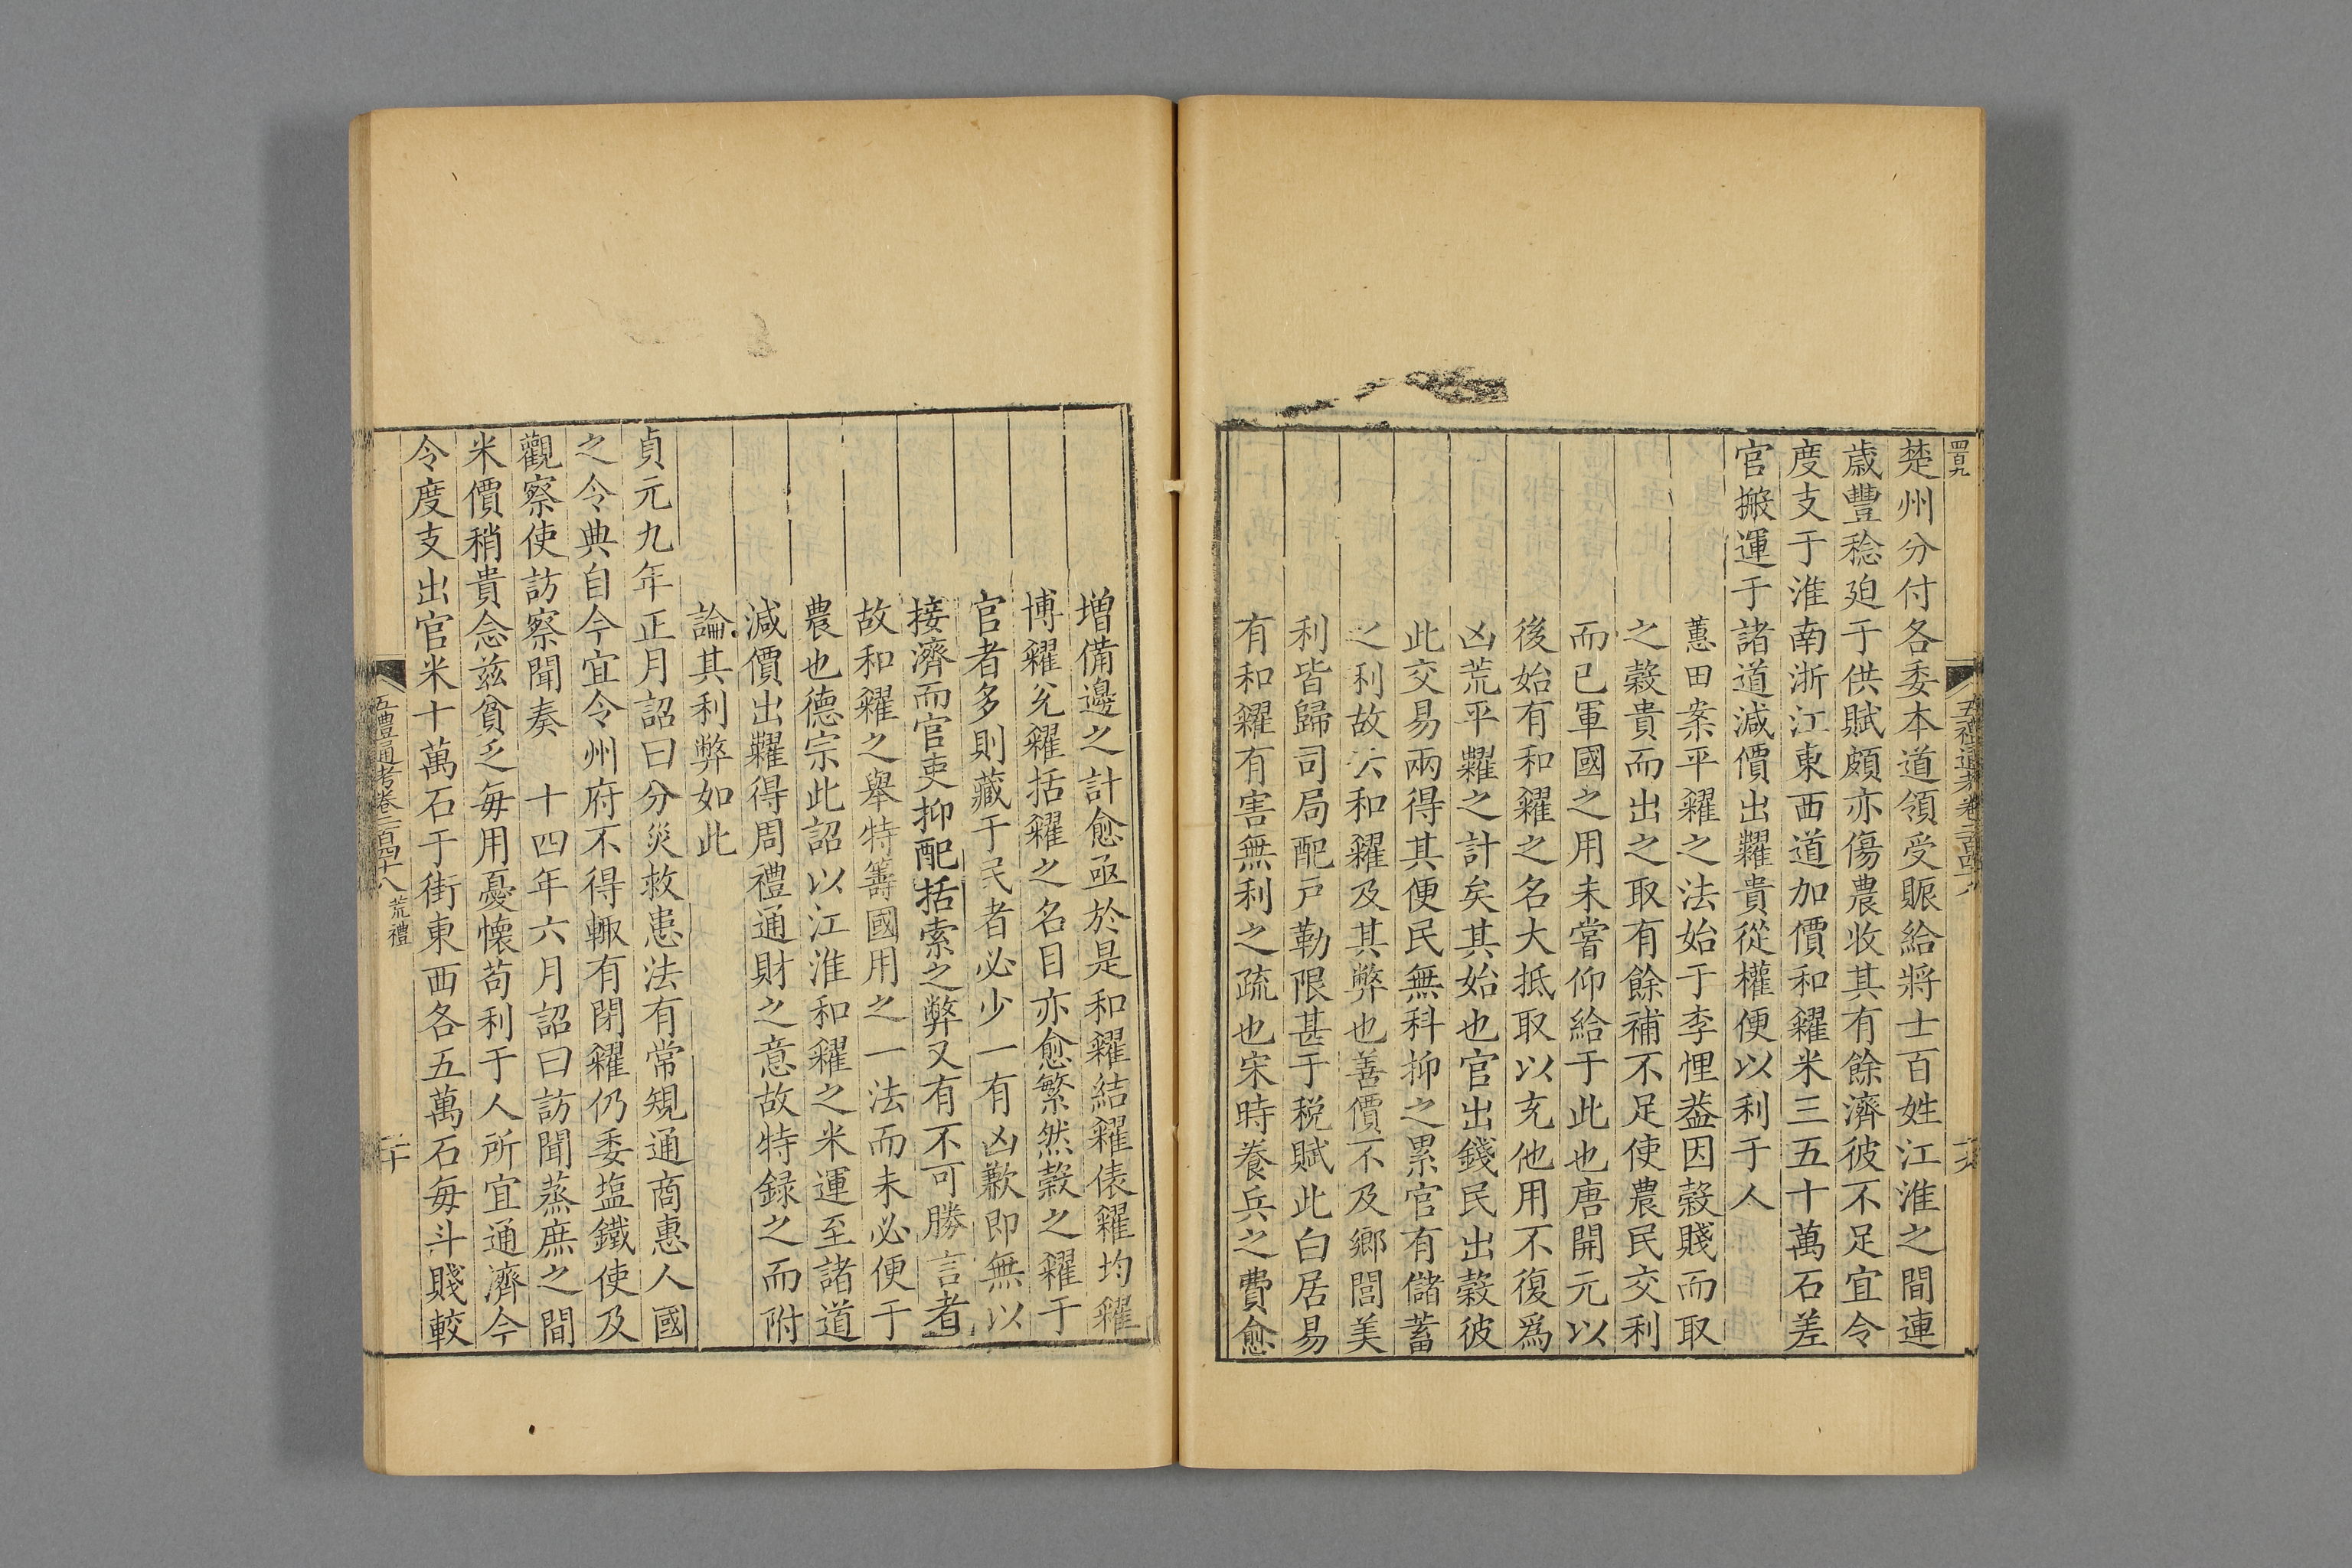 楚州分付各委本道領受賑給將士百姓江淮之間連
歲豐稔廹于供賦頗亦傷農收其有餘濟彼不足宜令
度支于淮南浙江東西道加價和糴米三五十萬石差
官搬運于諸道減價出糶貴從權便以利于人
蕙田案平糴之法始于李悝葢因穀賤而取
之穀貴而出之取有餘補不足使農民交利
而已軍國之用未嘗仰給于此也唐開元以
後始有和糴之名大抵取以充他用不復爲
凶荒平糶之計矣其始也官出錢民出穀彼
此交易兩得其便民無科抑之累官有儲蓄
之利故六和糴及其弊也善價不及鄉閭美
利皆歸司局配戸勒限甚于税賦此白居易
有和糴有害無利之疏也宋時養兵之費愈
增備邊之計愈亟於是和糴結糴俵糴均糴
博糴兊糴括糴之名目亦愈繁然穀之糴于
官者多則藏于民者必少一有凶歉即無以
接濟而官吏抑配括索之弊又有不可勝言者
故和糴之舉特籌國用之一法而未必便于
農也德宗此詔以江淮和糴之米運至諸道
減價出糶得周禮通財之意故特録之而附
論其利弊如此
貞元九年正月詔曰分災救患法有常規通商惠人國
之令典自今宜令州府不得輙有閉糴仍委塩鐵使及
觀察使訪察聞奏　十四年六月詔曰訪聞蒸庶之間
米價稍貴念兹貧乏每用憂懐苟利于人所宜通濟今
令度支出官米十萬石于街東西各五萬石每斗賤較
五禮通考卷二百四十八 荒禮
二十